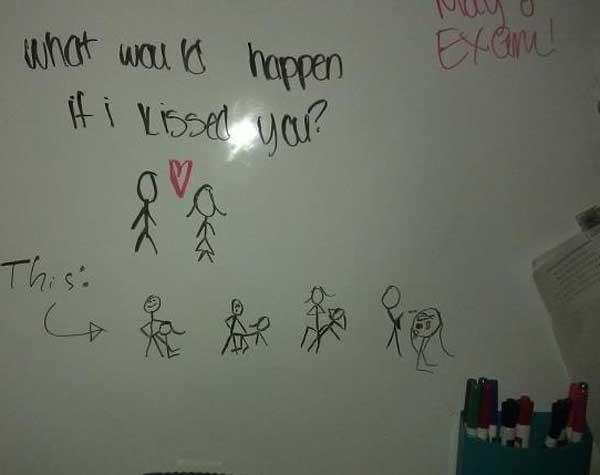 May 8
EXam!
what would happen
if i kissed you?
This: